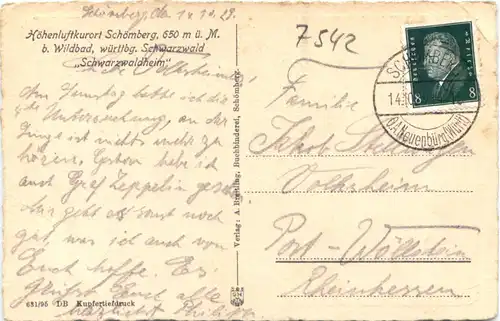 Schömberg, den 14.10.29.
Höhenluftkurort Schömberg, 650 m ü. M.
b. Wildbad, württbg. Schwarzwald
„Schwarzwaldheim"
Am Samstag hatte ich die
Untersuchung, an der
Lunge ist nichts mehr zu
hören. Gestern habe ich
auch Graf Zeppelin
Mir geht es sonst noch
gut, was ich auch von
Euch hoffe. Es
grüßt Euch alle
herzlich Philipp
681/96 DB Kupfertiefdruck
Verlag: A. Buchbinderei, Schömberg
7542
Deutsches Reich
8 8
SCHÖMBERG
14.10
(OA) Neuenbürg (Württ)
Familie
Jakob
Volxheim
Post-Wöllstein
Rheinhessen